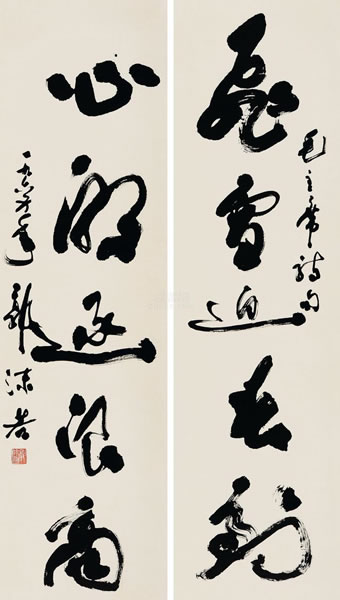 毛主席詩句
飛雪迎春到
心潮逐浪高
郭沫若